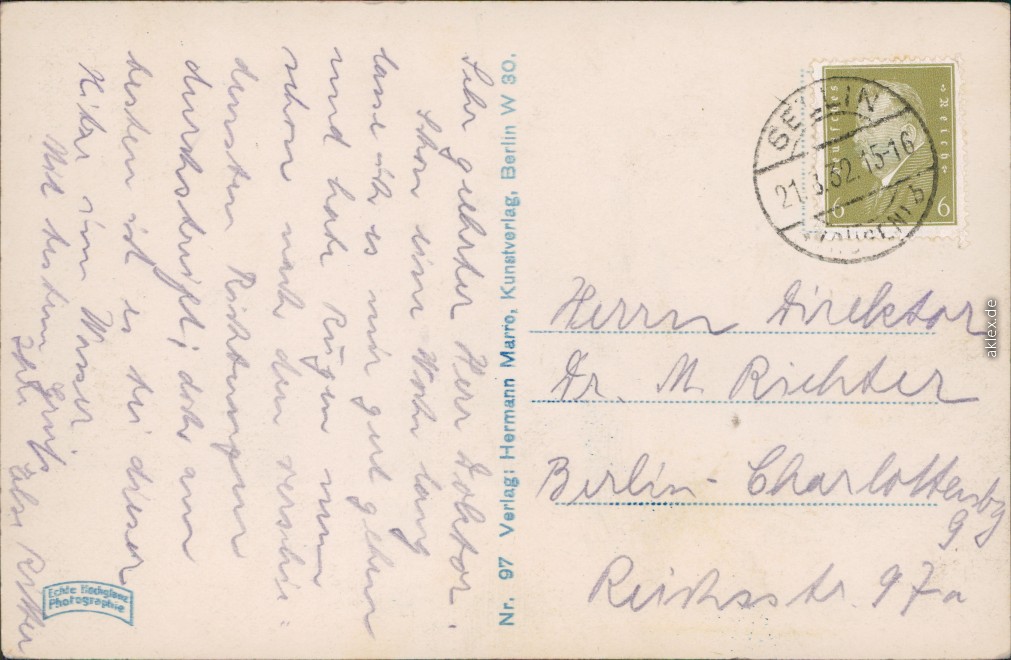 Sehr geehrter Herr Doktor.
Schon eine Woche lang
lasse ich es mir gut gehen
und habe Rügen nun
schon nach den verschie-
densten Richtungen
durchstreift; doch am
besten ist es bei dieser
Hitze im Wasser
Mit bestem Gruß
Ihre Else
Nr. 97 Verlag: Hermann Marro, Kunstverlag, Berlin W 30.
Echte Hochglanz
Photographie
Deutsches Reich
6 6
SELLIN
21.8.32.15-16
b
(RÜGEN)
Herrn Direktor
Dr. M. Richter
Berlin-Charlottenbg
9
Reichsstr. 97a
aklex.de